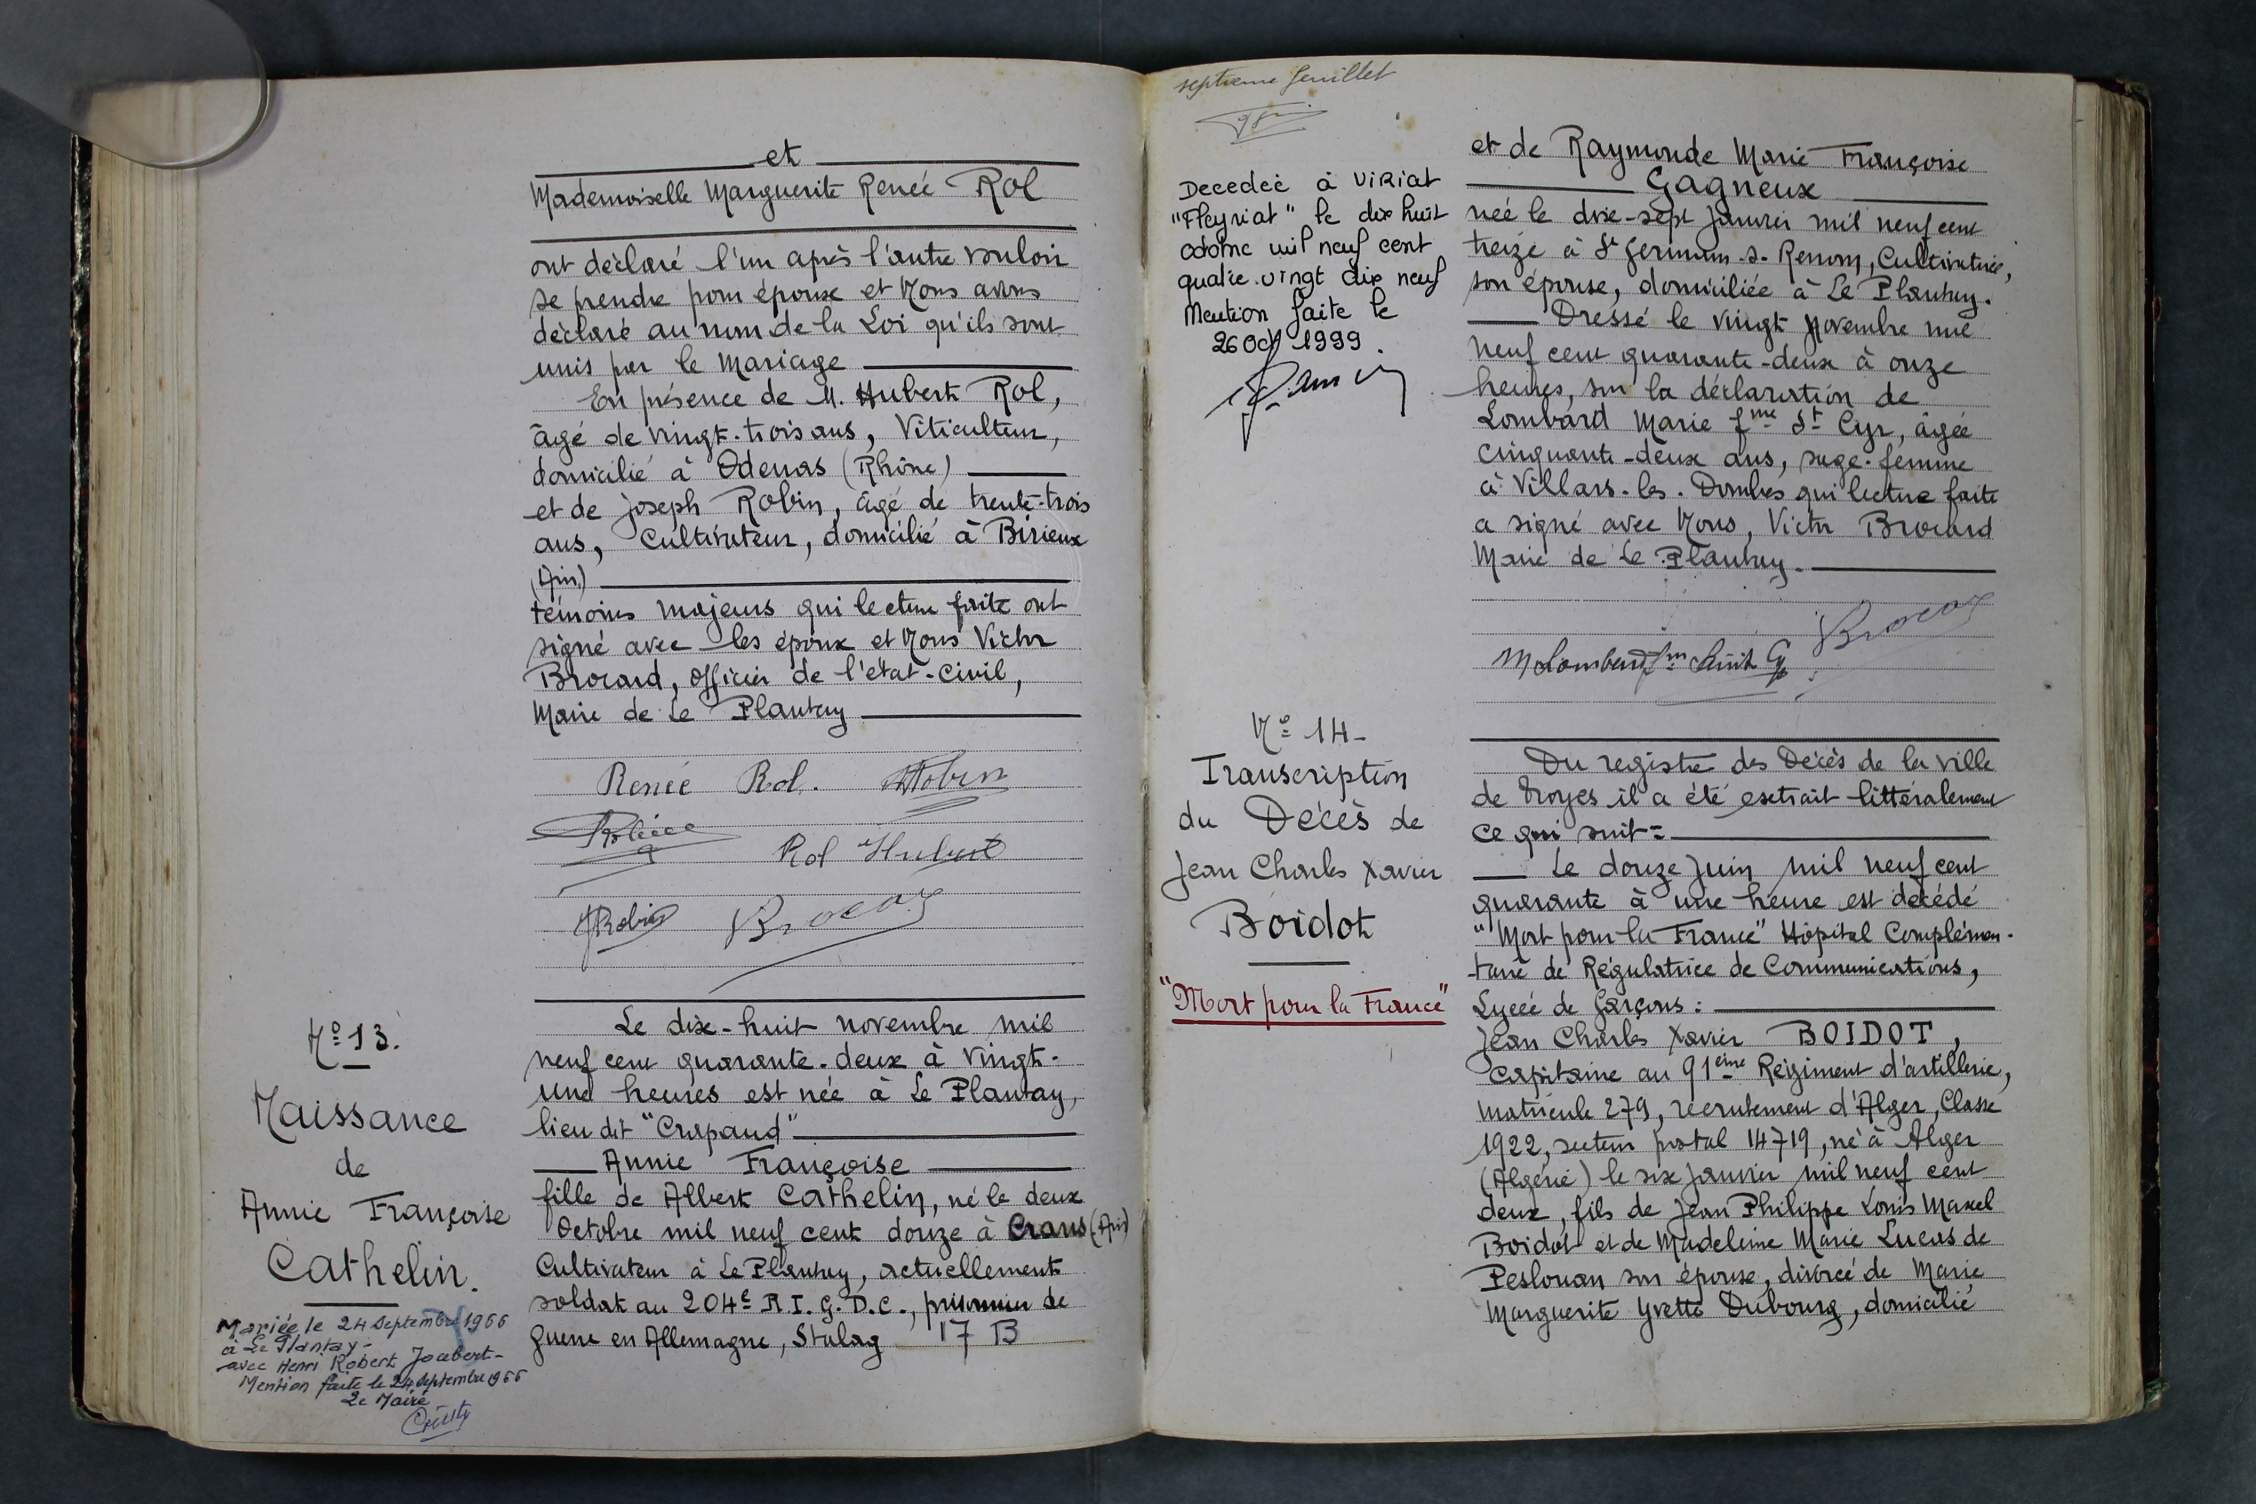 et
Mademoiselle Marguerite Renée Rol
ont déclaré l'un après l'autre vouloir
se prendre pour époux et Nous avons
déclaré au nom de la Loi qu'ils sont
unis par le Mariage
En présence de M. Hubert Rol,
âgé de vingt-trois ans, Viticulteur,
domicilié à Odenas (Rhône)
et de Joseph Robin, âgé de trente-trois
ans, Cultivateur, domicilié à Birieux
(Ain)
témoins majeurs qui lecture faite ont
signé avec les époux et Nous Victor
Brocard, officier de l'état-civil,
Maire de Le Plantay
Renée Rol. Robin
Rol Hubert
JRobin Brocard
N° 13.
Naissance
de
Annie Françoise
Cathelin.
Mariée le 24 Septembre 1966
à Le Plantay-
avec Henri Robert Joubert-
Mention faite le 24 Septembre 1966
Le Maire
Le dix-huit novembre mil
neuf cent quarante-deux à vingt-
une heures est née à Le Plantay,
lieu dit "Crapaud"
Annie Françoise
fille de Albert Cathelin, né le deux
Octobre mil neuf cent douze à Crans (Ain)
Cultivateur à Le Plantay, actuellement
soldat au 204e R.I.G.D.C., prisonnier de
guerre en Allemagne, Stalag 17 B
septième feuillet
Decedée à VIRIAT
"Fleyriat" le dix huit
octobre mil neuf cent
quatre-vingt dix neuf
Mention faite le
26 Oct 1999.
et de Raymonde Marie Françoise
Gagneux
née le dix-sept Janvier mil neuf cent
treize à St Germain-s-Renom, Cultivatrice,
son épouse, domiciliée à Le Plantay.
Dressé le vingt Novembre mil
neuf cent quarante-deux à onze
heures, sur la déclaration de
Lombard Marie fme St Cyr, âgée
cinquante-deux ans, sage-femme
à Villars-les-Dombes qui lecture faite
a signé avec Nous, Victor Brocard
Maire de Le Plantay.
MLombard fm Saint Cyr Brocard
N° 14-
Transcription
du Décès de
Jean Charles Xavier
Boidot
"Mort pour la France"
Du registre des Décès de la ville
de Troyes il a été extrait littéralement
ce qui suit =
Le douze Juin mil neuf cent
quarante à une heure est décédé
"Mort pour la France" Hôpital Complémen-
taire de Régulatrice de Communications,
Lycée de Garçons :
Jean Charles Xavier BOIDOT,
Capitaine au 91ème Régiment d'artillerie,
Matricule 279, recrutement d'Alger, Classe
1922, secteur postal 14719, né à Alger
(Algérie) le six Janvier mil neuf cent
deux, fils de Jean Philippe Louis Marcel
Boidot et de Madeleine Marie Lucas de
Peslouan son épouse, divorcé de Marie
Marguerite Yvette Dubourg, domicilié